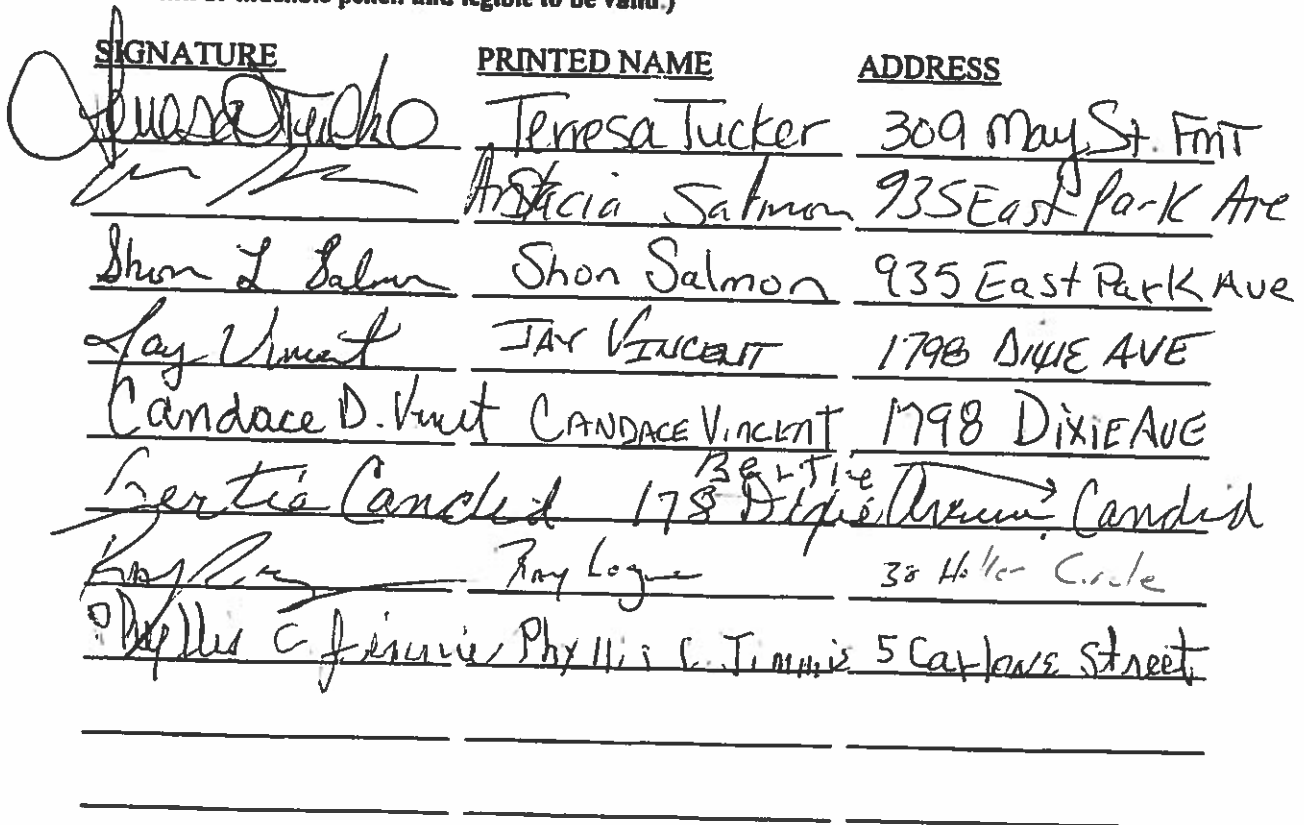 and legible to be valid.)
SIGNATURE PRINTED NAME ADDRESS
Terresa Tucker 309 May St. FmT
Anstacia Salmon 935 East Park Ave
Shon L Salmon Shon Salmon 935 East Park Ave
Jay Vincent JAY VINCENT 1798 DIXIE AVE
Candace D. Vincent CANDACE VINCENT 1798 DIXIE AVE
Bertie
Bertie Candid 178 Dixie Avenue Candid
Ray Logue 38 Holler Circle
Phyllis C Timmie Phyllis C. Timmie 5 Carlone Street